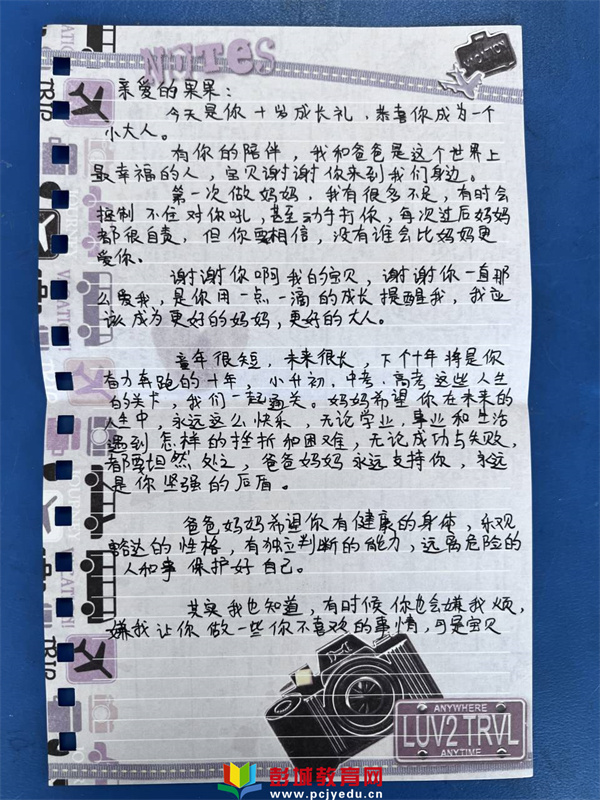 NOTES
VACATION
亲爱的果果：
今天是你十岁成长礼，恭喜你成为一个
小大人。
有你的陪伴，我和爸爸是这个世界上
最幸福的人，宝贝谢谢你来到我们身边。
第一次做妈妈，我有很多不足，有时会
控制不住对你吼，甚至动手打你，每次过后妈妈
都很自责，但你要相信，没有谁会比妈妈更
爱你。
谢谢你啊我的宝贝，谢谢你一直那
么爱我，是你用一点一滴的成长提醒我，我应
该成为更好的妈妈，更好的大人。
童年很短，未来很长，下个十年将是你
奋力奔跑的十年，小升初、中考、高考这些人生
的关卡，我们一起通关。妈妈希望你在未来的
人生中，永远这么快乐，无论学业，事业和生活
遇到怎样的挫折和困难，无论成功与失败，
都要坦然处之，爸爸妈妈永远支持你，永远
是你坚强的后盾。
爸爸妈妈希望你有健康的身体，乐观
豁达的性格，有独立判断的能力，远离危险的
人和事保护好自己。
其实我也知道，有时候你也会嫌我烦，
嫌我让你做一些你不喜欢的事情，可是宝贝
ANYWHERE
LUV2TRVL
ANYTIME
彭城教育网
www.pcjyedu.cn
TRIP
TRIP